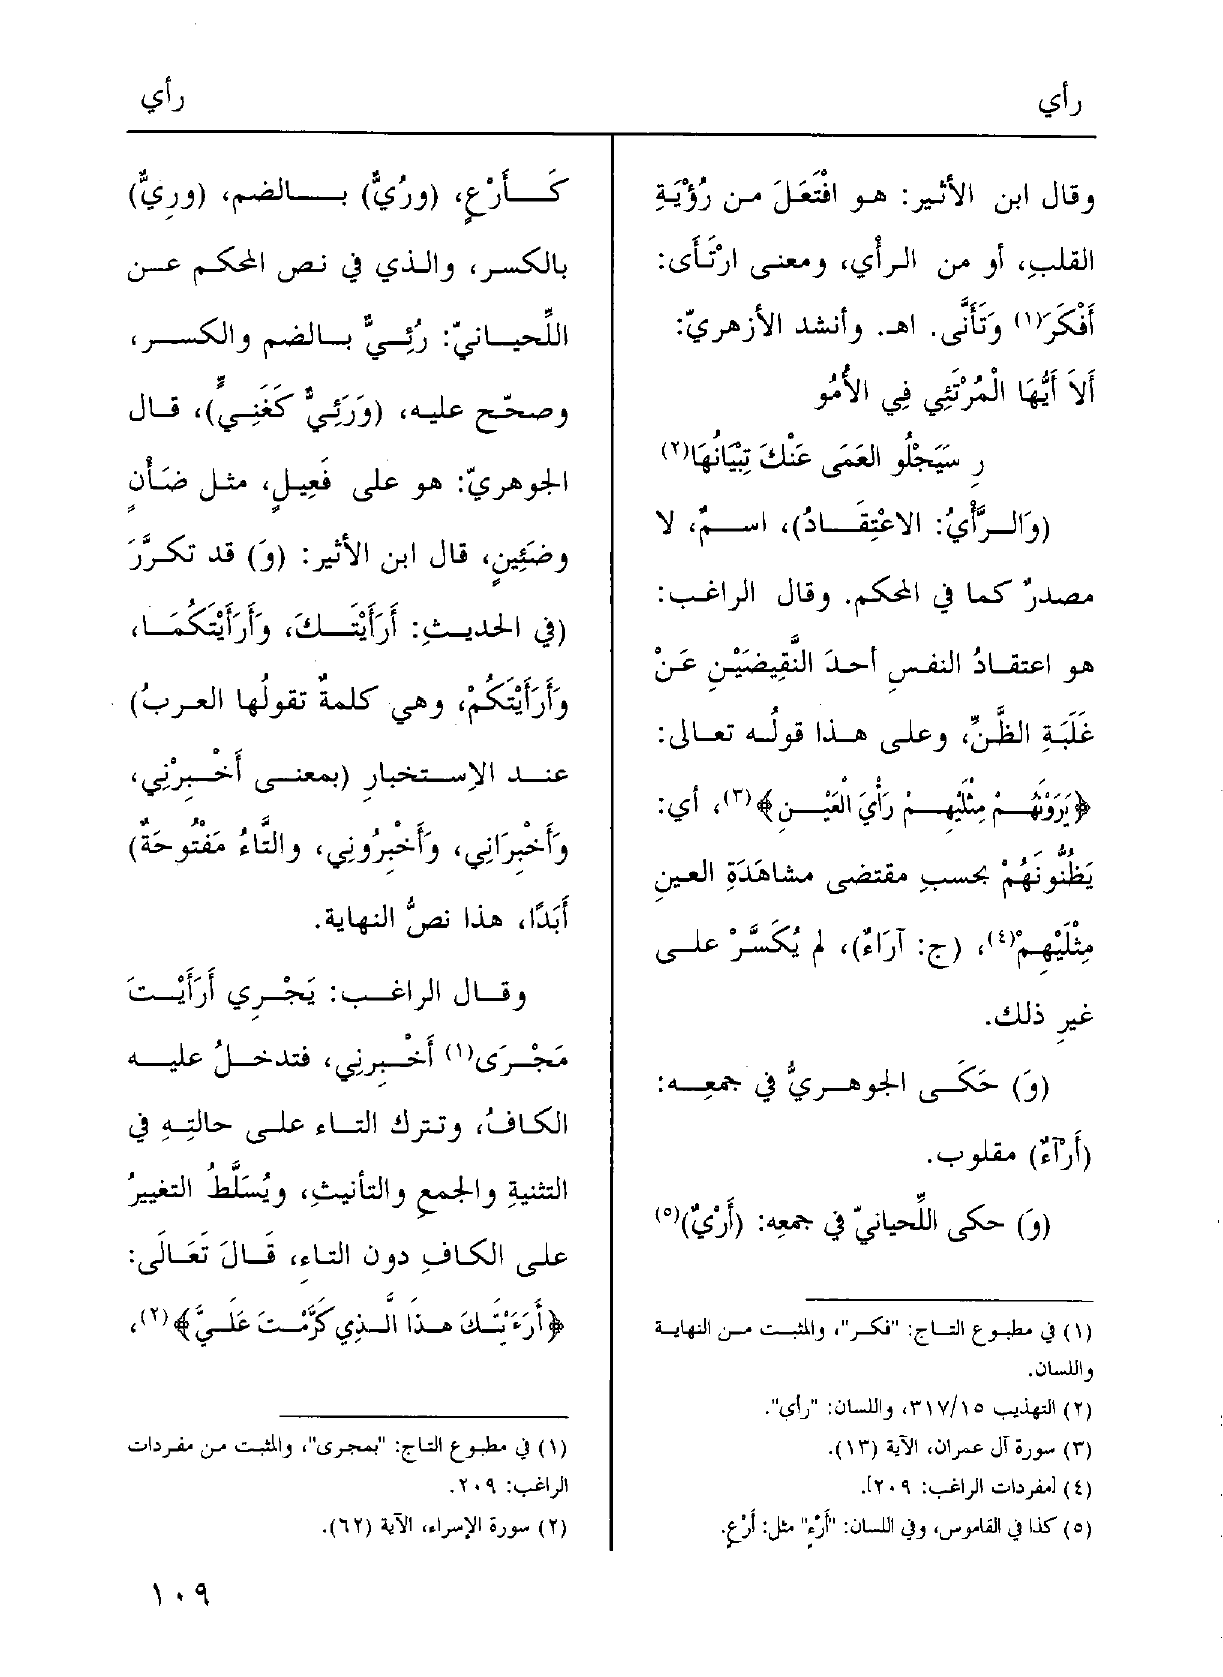 رأي
رأي
وقال ابن الأثير: هو افْتَعَلَ من رُؤْيَةِ
القلبِ، أو من الرأْيِ، ومعنى ارْتَأَى:
أَفْكَرَ(١) وَتَأَنَّى. اهـ. وأنشد الأزهريّ:
أَلاَ أَيُّهَا الْمُرْتَئِي فِي الأُمُو
رِ سَيَجْلُو العَمَى عَنْكَ تِبْيَانُهَا(٢)
(وَالرَّأْيُ: الاعْتِقَادُ)، اسمٌ، لا
مصدرٌ كما في المحكم. وقال الراغب:
هو اعتقادُ النفسِ أحدَ النَّقِيضَيْنِ عَنْ
غَلَبَةِ الظَّنِّ، وعلى هذا قولُه تعالى:
﴿يَرَوْنَهُمْ مِثْلَيْهِمْ رَأْيَ العَيْنِ﴾(٣)، أي:
يَظُنُّونَهُمْ بحسبِ مقتضى مشاهَدَةِ العينِ
مِثْلَيْهِمْ(٤)، (ج: آرَاءٌ)، لم يُكَسَّرْ على
غيرِ ذلك.
(وَ) حَكَى الجوهريُّ في جمعِه:
(أَرْآءٌ) مقلوب.
(وَ) حكى اللِّحيانيّ في جمعِه: (أَرْيٌ)(٥)
(١) في مطبوع التاج: "فكر"، والمثبت من النهاية
واللسان.
(٢) التهذيب ٣١٧/١٥، واللسان: "رأى".
(٣) سورة آل عمران، الآية (١٣).
(٤) [مفردات الراغب: ٢٠٩].
(٥) كذا في القاموس، وفي اللسان: "أَرْءٍ" مثل: أَرْعٍ.
كَأَرْعٍ، (ورُيٌّ) بالضم، (ورِيٌّ)
بالكسر، والذي في نص المحكم عن
اللِّحيانيّ: رُئِيٌّ بالضم والكسر،
وصحّح عليه، (وَرَئِيٌّ كَغَنِيٍّ)، قال
الجوهريّ: هو على فَعِيلٍ، مثل ضَأْنٍ
وضَئِينٍ، قال ابن الأثير: (وَ) قد تكرَّرَ
(في الحديثِ: أَرَأَيْتَكَ، وَأَرَأَيْتَكُمَا،
وَأَرَأَيْتَكُمْ، وهي كلمةٌ تقولُها العربُ)
عند الاِستخبارِ (بمعنى أَخْبِرْنِي،
وَأَخْبِرَانِي، وَأَخْبِرُونِي، والتَّاءُ مَفْتُوحَةٌ)
أَبَدًا، هذا نصُّ النهاية.
وقال الراغب: يَجْرِي أَرَأَيْتَ
مَجْرَى(١) أَخْبِرنِي، فتدخلُ عليه
الكافُ، وتترك التاء على حالتِهِ في
التثنيةِ والجمعِ والتأنيثِ، ويُسَلَّطُ التغييرُ
على الكافِ دون التاءِ، قَالَ تَعَالَى:
﴿أَرَءَيْتَكَ هَذَا الَّذِي كَرَّمْتَ عَلَيَّ﴾(٢)،
(١) في مطبوع التاج: "بمجرى"، والمثبت من مفردات
الراغب: ٢٠٩.
(٢) سورة الإسراء، الآية (٦٢).
١٠٩